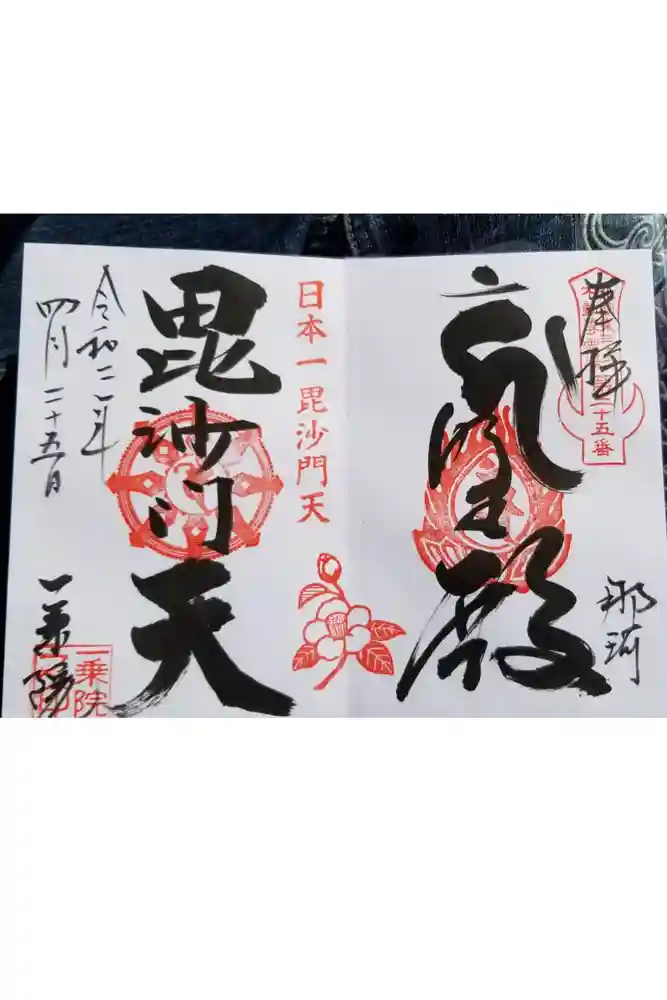 奉拝
二十五番
殿
那珂
日本一毘沙門天
毘沙門天
令和二年
四月二十五日
一乗院
一乗院